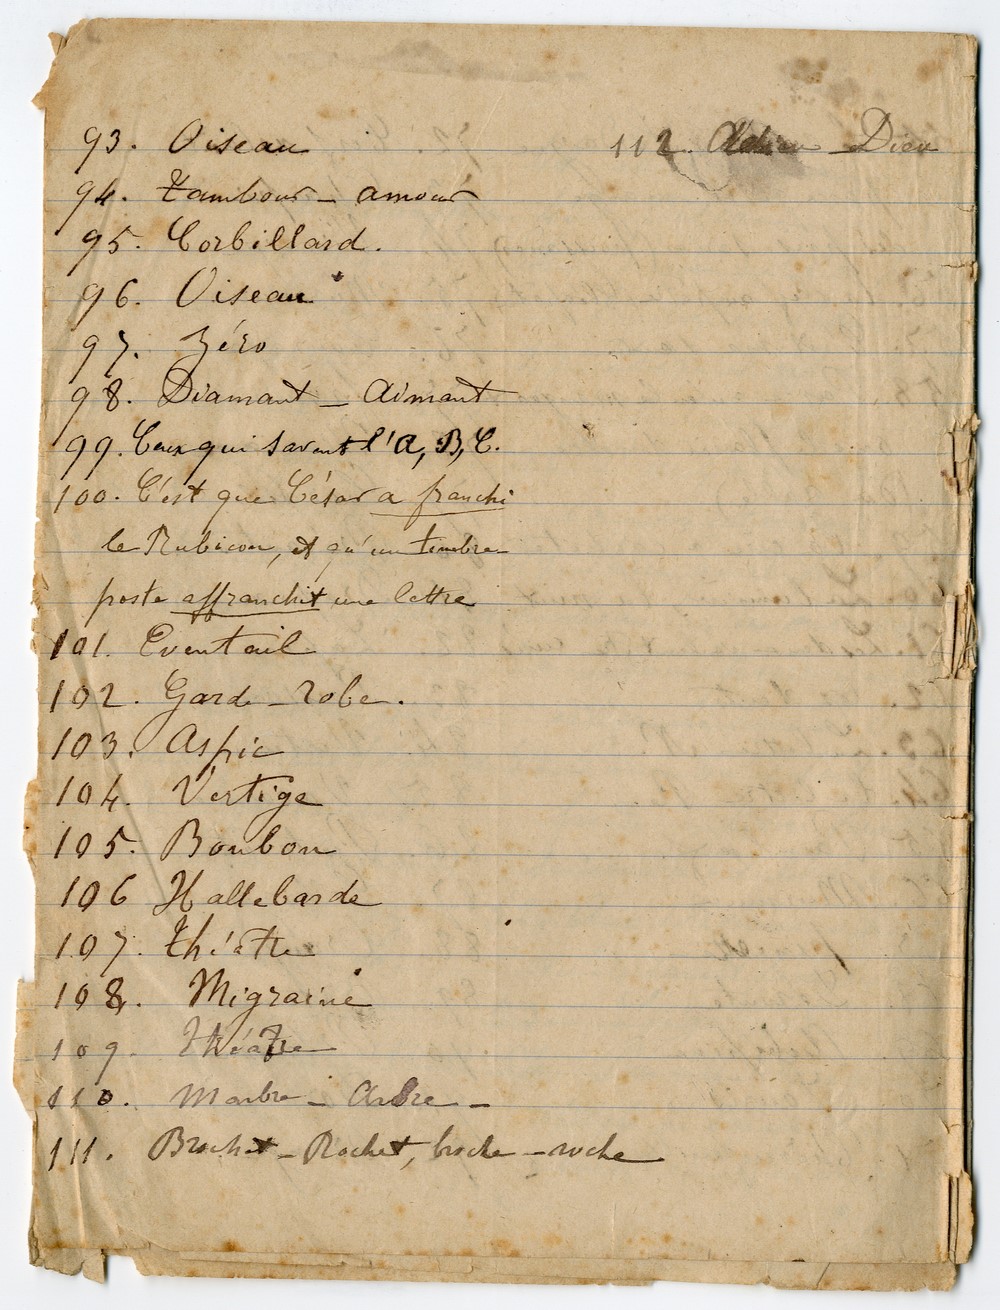 93. Oiseau
94. Tambour - amour
95. Corbillard.
96. Oiseau
97. Zéro
98. Diamant - Aimant
99. Ceux qui savent l'A, B, C.
100. C'est que César a franchi
le Rubicon, et qu'un timbre
poste affranchit une lettre
101. Eventail
102. Garde-robe.
103. Aspic
104. Vertige
105. Bonbon
106 Hallebarde
107. Théâtre
108. Migraine
109. Théâtre
110. Marbre - Arbre -
111. Brochet - Rochet, broche - roche
112. Adieu - Dieu